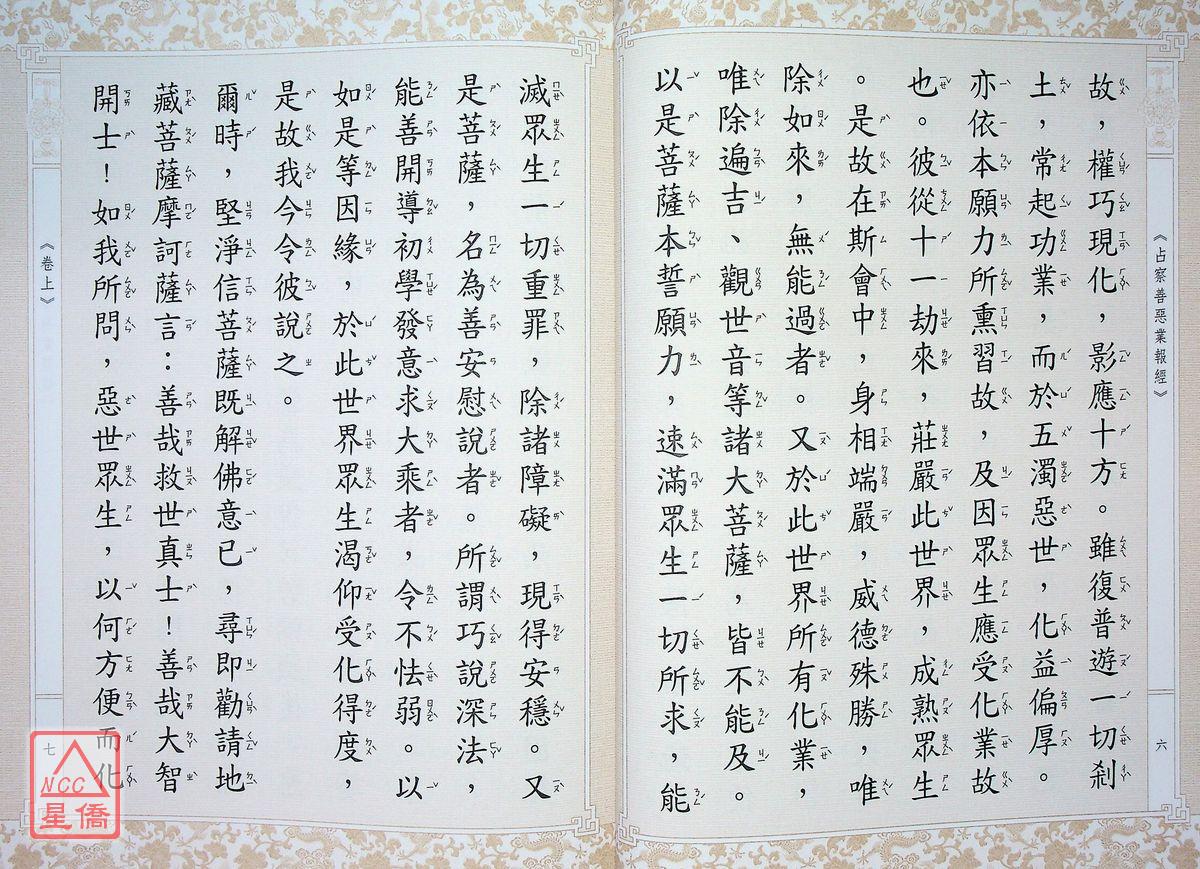 《占察善惡業報經》
六
故，權巧現化，影應十方。雖復普遊一切剎
土，常起功業，而於五濁惡世，化益偏厚。
亦依本願力所熏習故，及因眾生應受化業故
也。彼從十一劫來，莊嚴此世界，成熟眾生
。是故在斯會中，身相端嚴，威德殊勝，唯
除如來，無能過者。又於此世界所有化業，
唯除遍吉、觀世音等諸大菩薩，皆不能及。
以是菩薩本誓願力，速滿眾生一切所求，能
滅眾生一切重罪，除諸障礙，現得安穩。又
是菩薩，名為善安慰說者。所謂巧說深法，
能善開導初學發意求大乘者，令不怯弱。以
如是等因緣，於此世界眾生渴仰受化得度，
是故我今令彼說之。
爾時，堅淨信菩薩既解佛意已，尋即勸請地
藏菩薩摩訶薩言：善哉救世真士！善哉大智
開士！如我所問，惡世眾生，以何方便而化
《卷上》
七
NCC
星僑